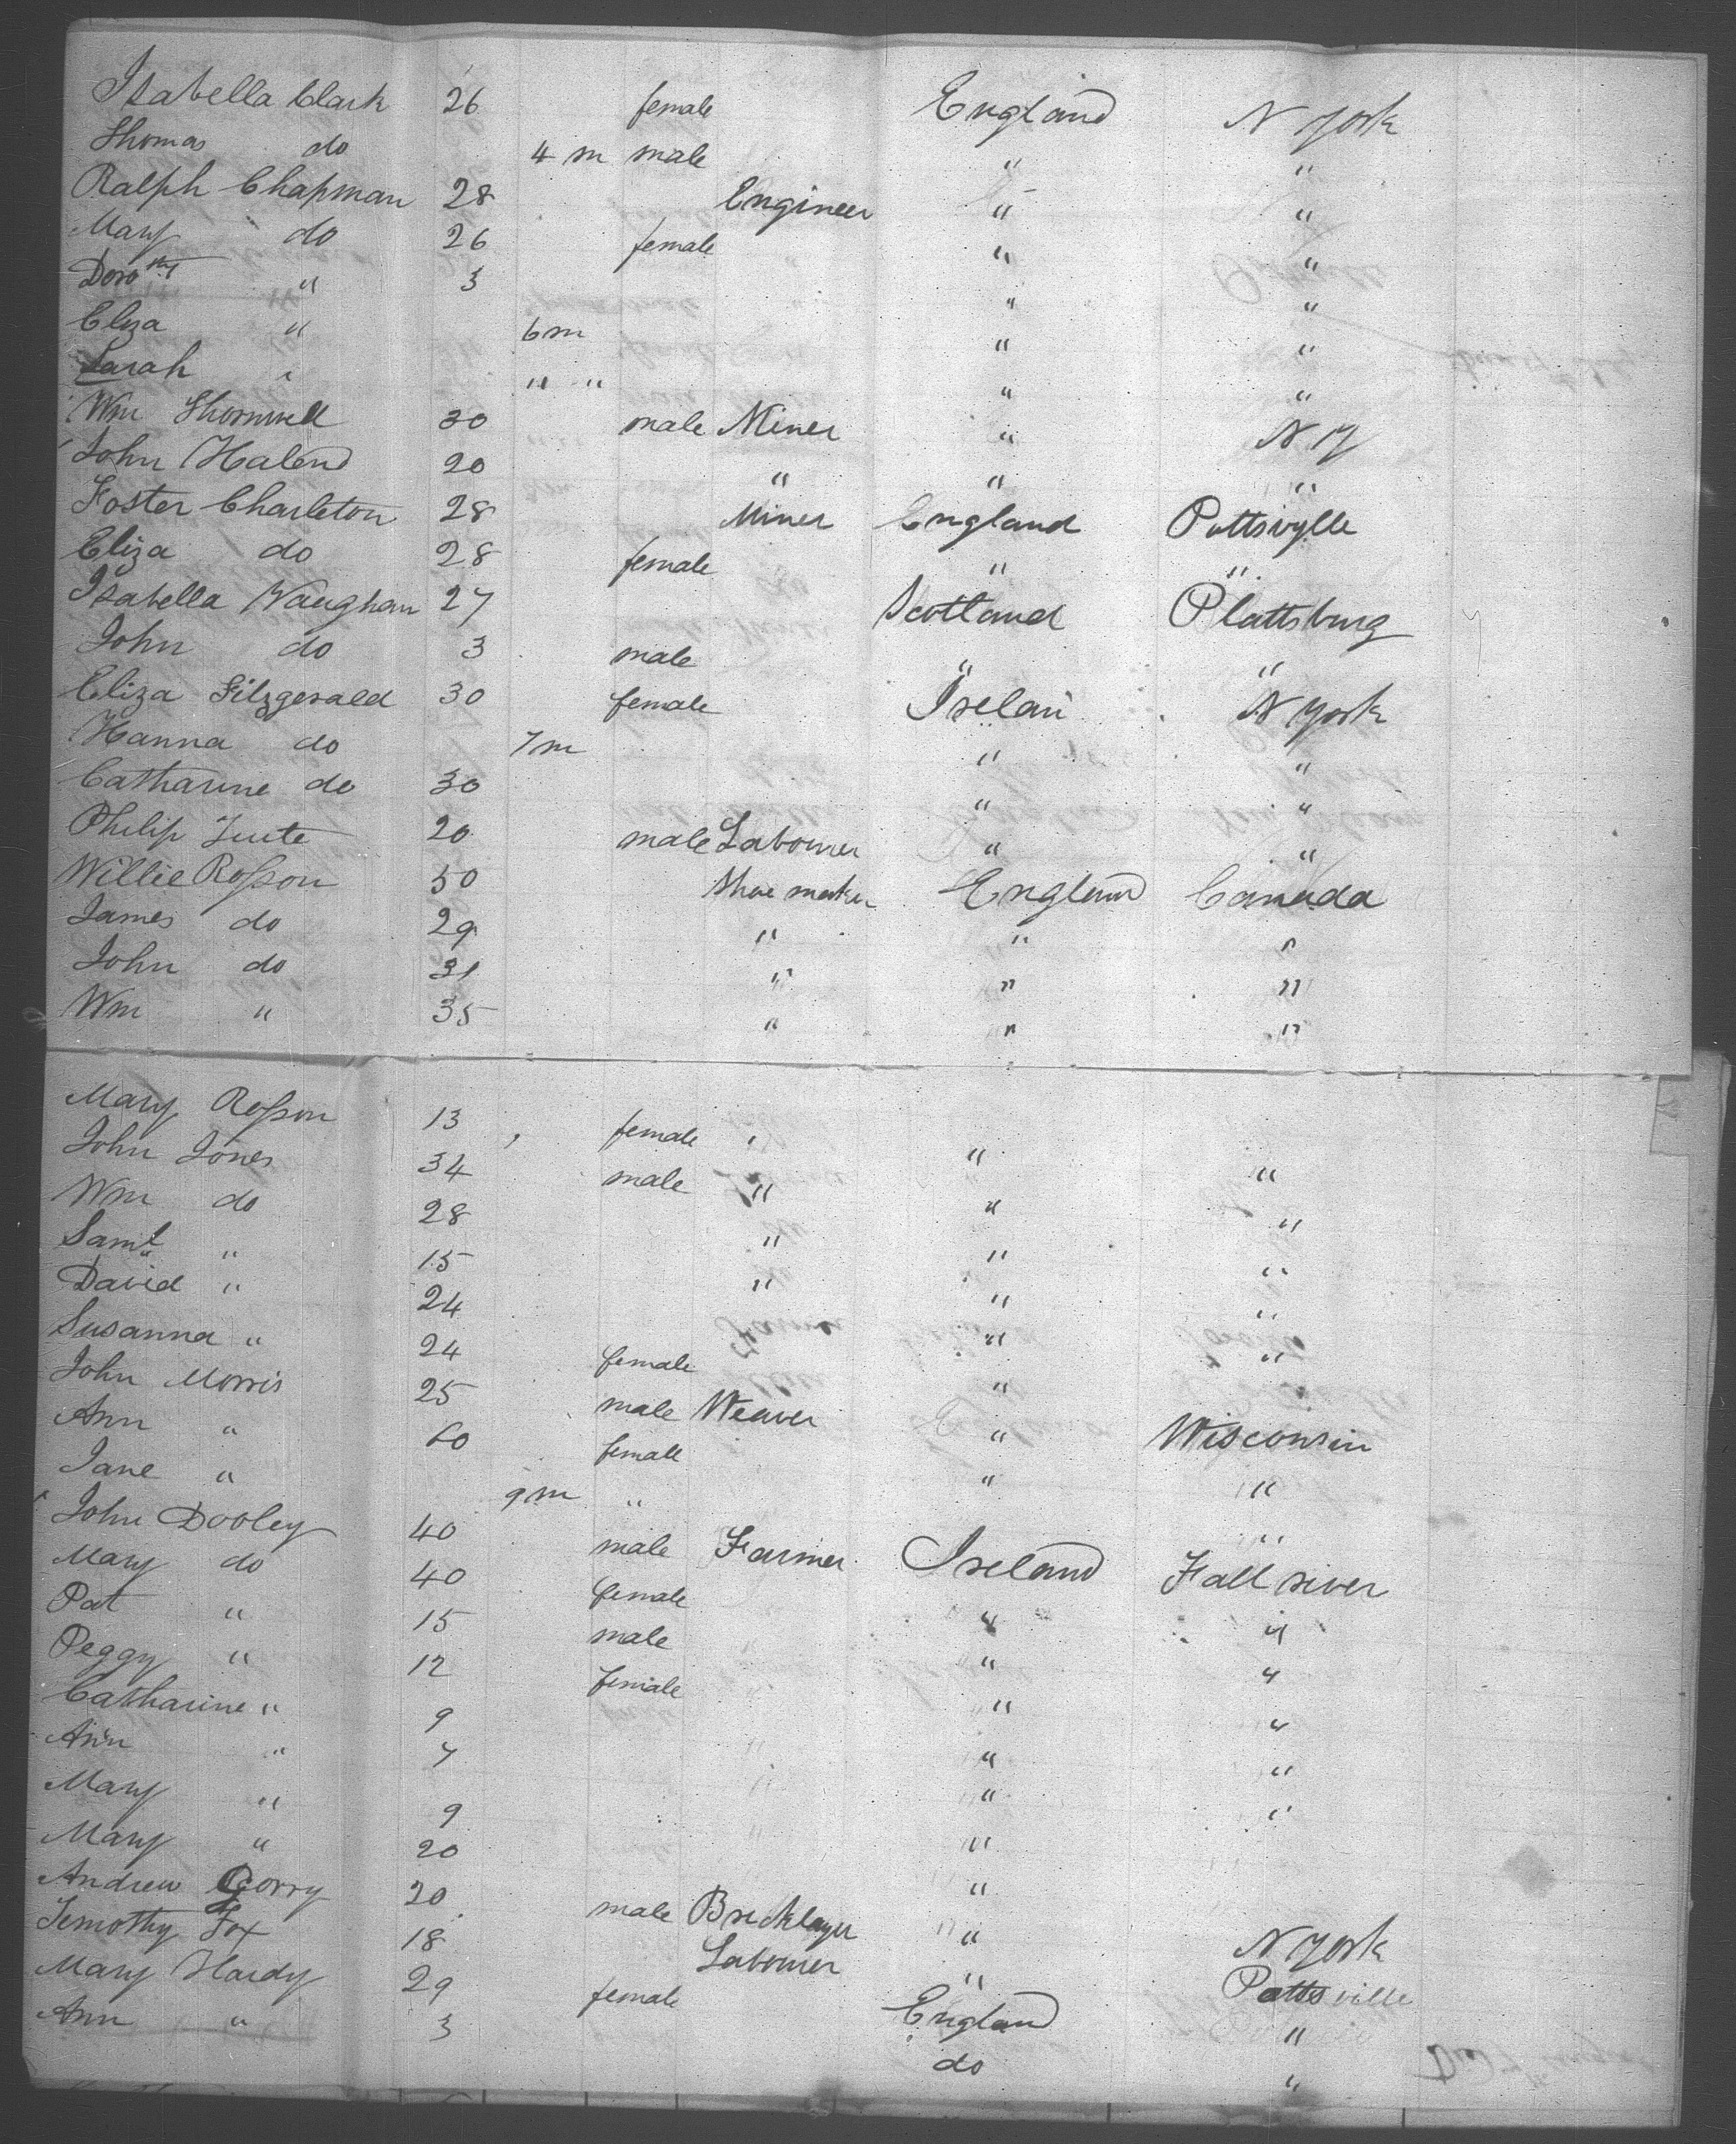 Isabella Clark 26 female England N York
Thomas do 4 m male " "
Ralph Chapman 28 Engineer " "
Mary do 26 female " "
Dorothy " 3 " "
Eliza " 6 m " "
Sarah " " " " "
Wm Thornwell 30 male Miner " N Y
John Halend 20 " " "
Foster Charleton 28 Miner England Pottsvylle
Eliza do 28 female " "
Isabella Vaughan 27 Scotland Plattsburg
John do 3 male " "
Eliza Fitzgerald 30 female Irelan N York
Hanna do 7 m " "
Catharine do 30 " "
Philip Tuite 20 male Labourer " "
Willie Rosson 50 Shoe maker England Canada
James do 29 " " "
John do 31 " " "
Wm " 35 " " "
Mary Rosson 13 female " " "
John Jones 34 male " " "
Wm do 28 " " "
Saml " 15 " " "
David " 24 " "
Susanna " 24 female " "
John Morris 25 male Weaver " Wisconsin
Ann " 60 female " "
Jane " 9 m " "
John Dooley 40 male Farmer Ireland Fall river
Mary do 40 female " "
Pat " 15 male " "
Peggy " 12 female " "
Catharine " 9 " "
Ann " 7 " "
Mary " 9 "
Mary " 20 "
Andrew Gorry 20 male Bricklayer " N York
Temothy Fox 18 Labourer " Pottsville
Mary Hardy 29 female England "
Ann " 3 do "